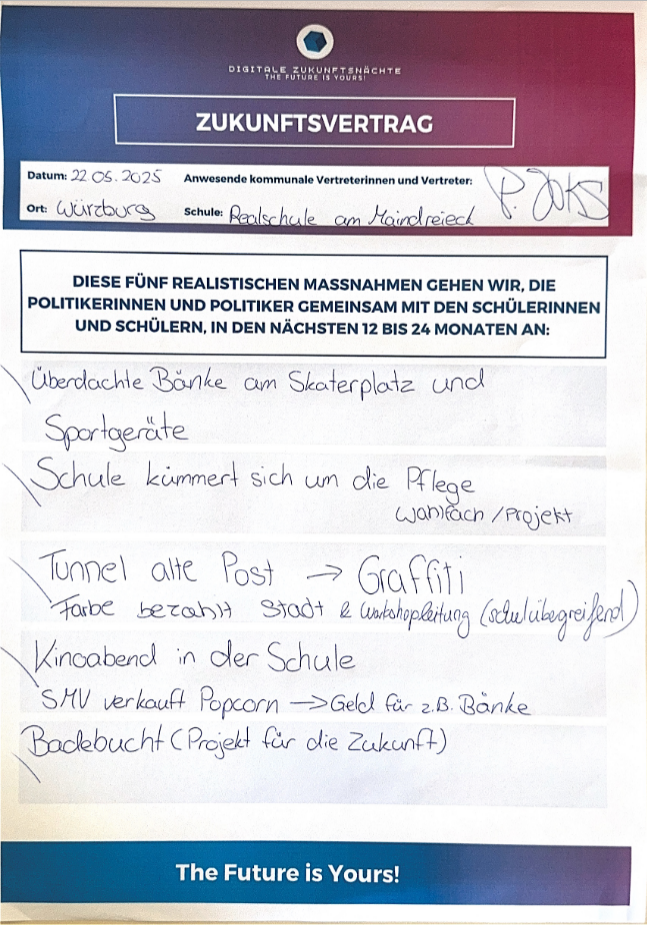 DIGITALE ZUKUNFTSNÄCHTE
THE FUTURE IS YOURS!
ZUKUNFTSVERTRAG
Datum: 22 05. 2025 Anwesende kommunale Vertreterinnen und Vertreter:
Ort: Würzburg Schule: Realschule am Maindreieck
DIESE FÜNF REALISTISCHEN MASSNAHMEN GEHEN WIR, DIE
POLITIKERINNEN UND POLITIKER GEMEINSAM MIT DEN SCHÜLERINNEN
UND SCHÜLERN, IN DEN NÄCHSTEN 12 BIS 24 MONATEN AN:
Überdachte Bänke am Skaterplatz und
Sportgeräte
Schule kümmert sich um die Pflege
Wahlfach / Projekt
Tunnel alte Post → Graffiti
Farbe bezahlt Stadt & Workshopleitung (schulübegreifend)
Kinoabend in der Schule
SMV verkauft Popcorn → Geld für z.B. Bänke
Badebucht (Projekt für die Zukunft)
The Future is Yours!